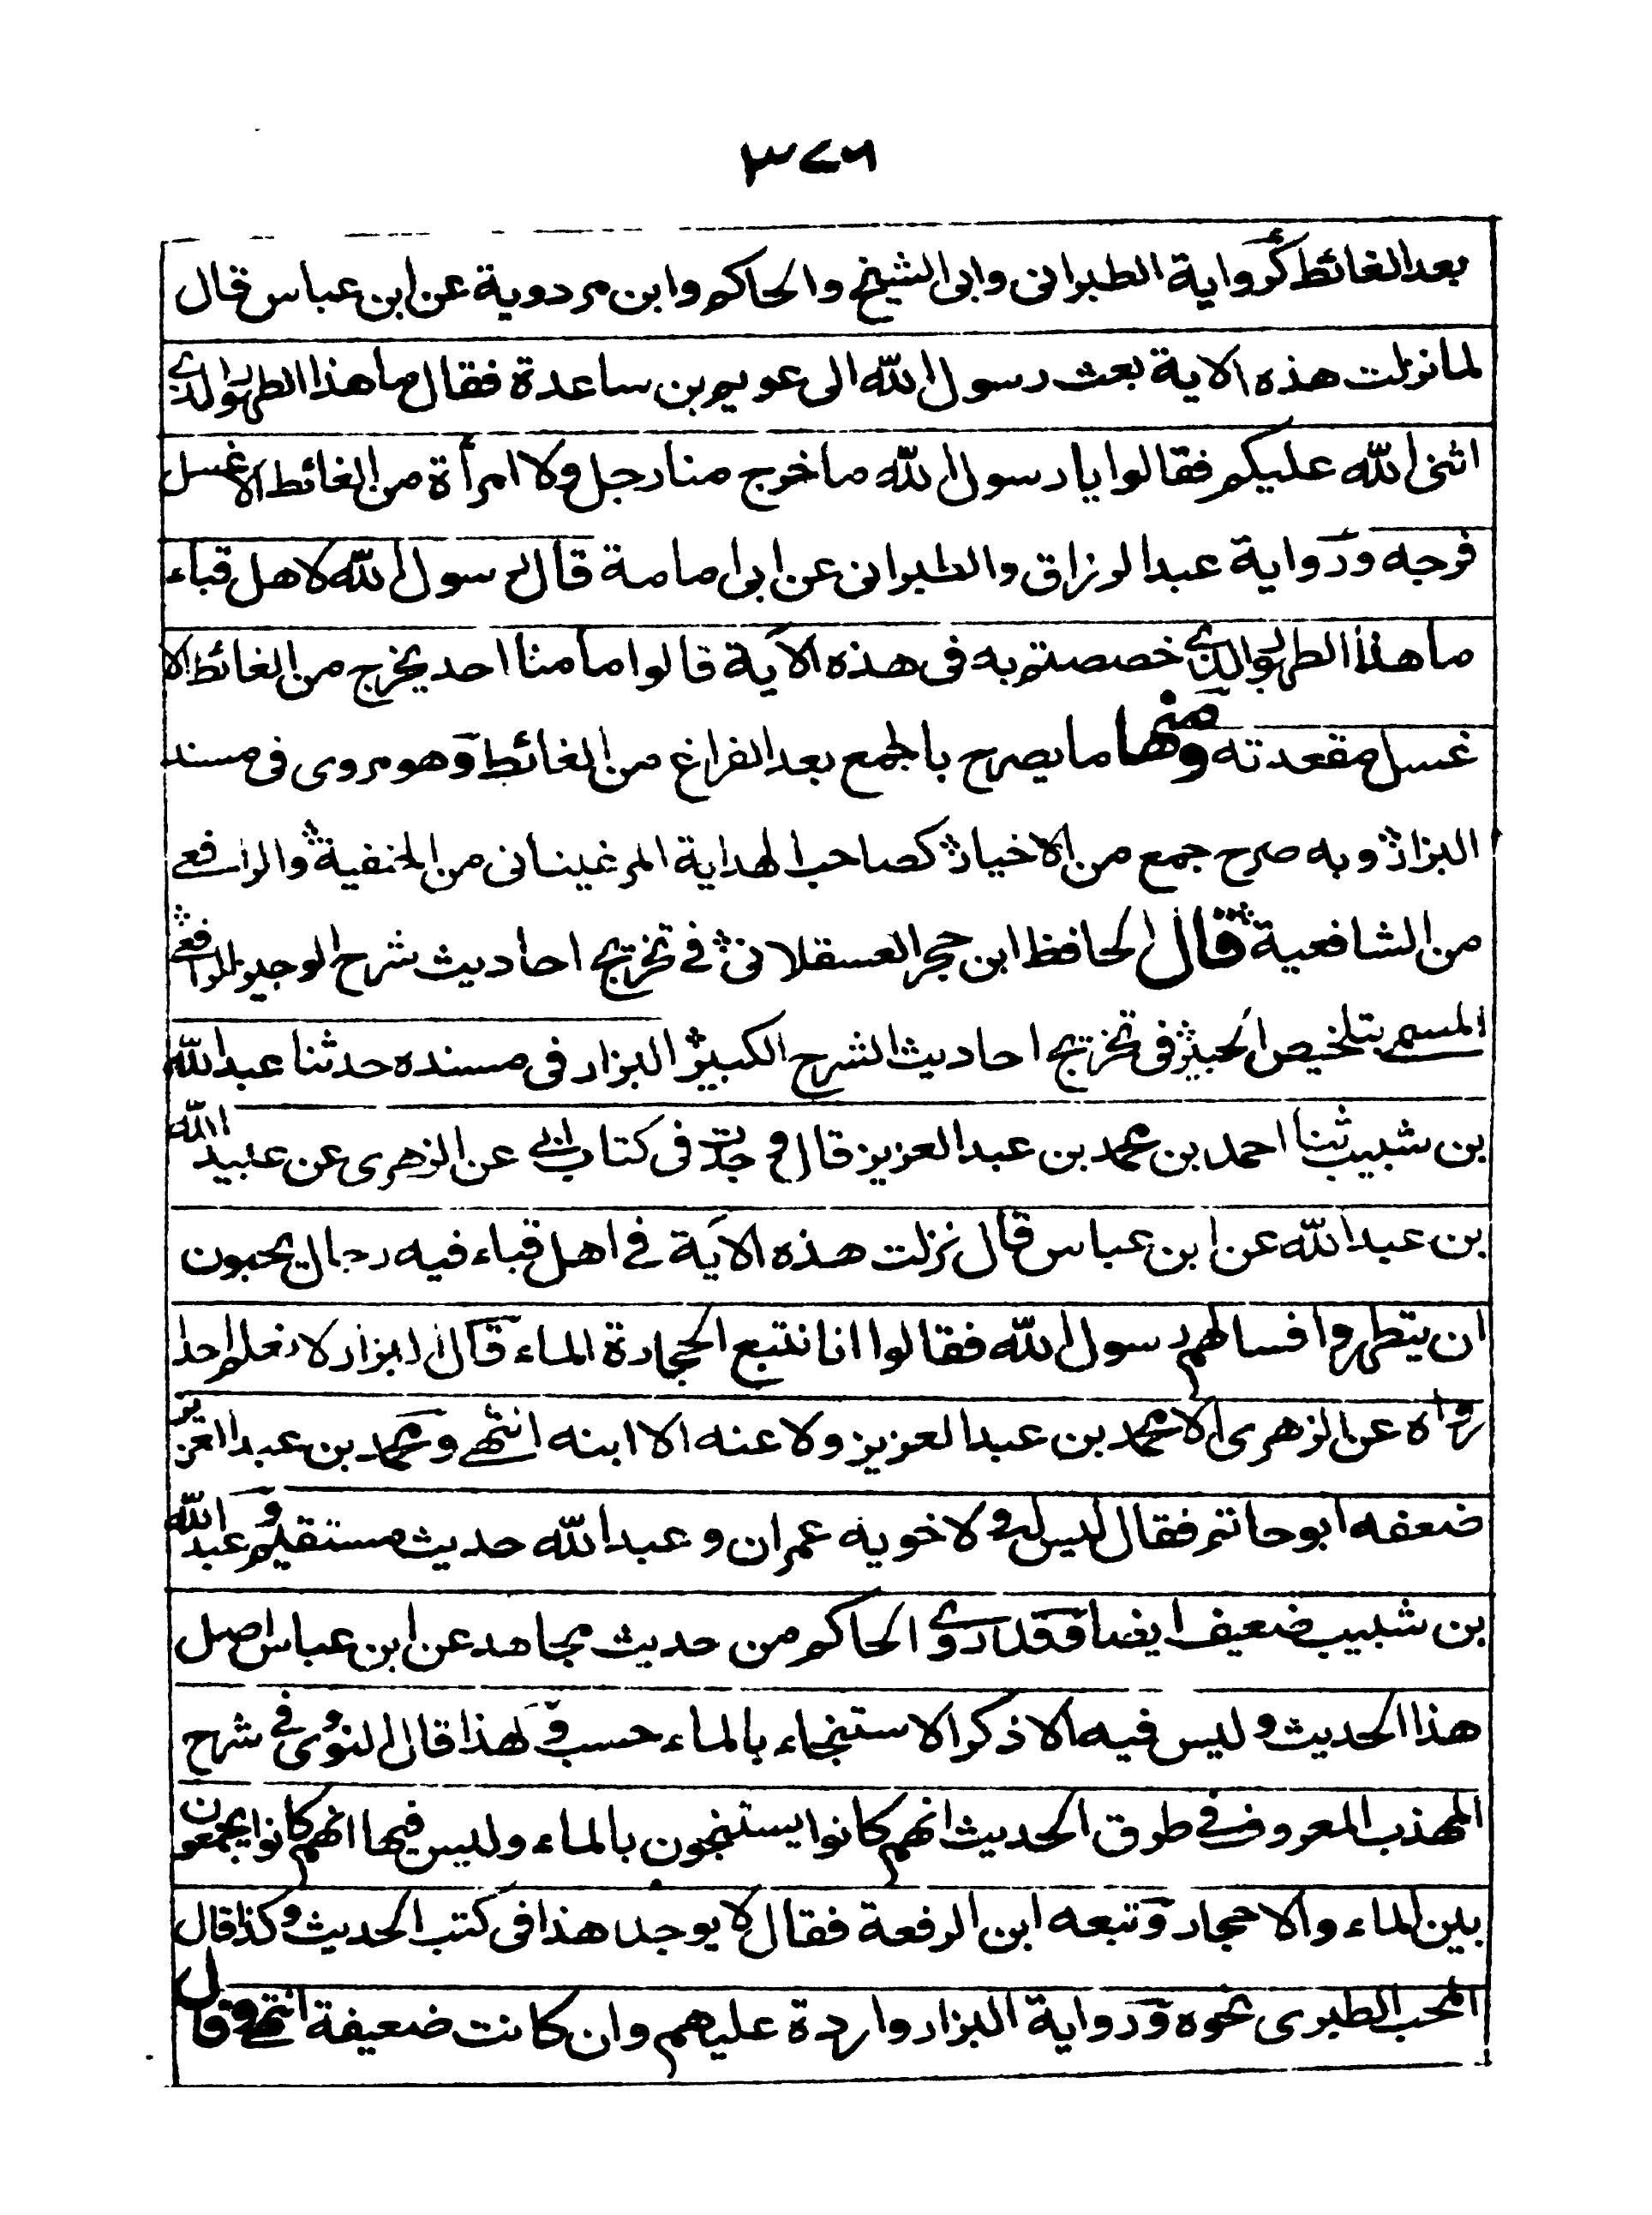 ٣٧٦
بعد الغائط كرواية الطبرانى وابى الشيخ والحاكم وابن مردوية عن ابن عباس قال
لما نزلت هذه الاية بعث رسول الله الى عويم بن ساعدة فقال ما هذا الطهور الذى
اثنى الله عليكم فقالوا يا رسول الله ما خرج منا رجل ولا امرأة من الغائط الا غسل
فرجه ورواية عبد الرزاق والطبرانى عن ابى امامة قال رسول الله لاهل قباء
ما هذا الطهور الذى خصصتم به فى هذه الآية قالوا ما منا احد يخرج من الغائط الا
غسل مقعدته ومنها ما يصرح بالجمع بعد الفراغ من الغائط وهو مروى فى مسند
البزار وبه صرح جمع من الاخيار كصاحب الهداية المرغينانى من الحنفية والرافعى
من الشافعية قال الحافظ ابن حجر العسقلانى فى تخريج احاديث شرح الوجيز للرافعى
المسمى بتلخيص الحبير فى تخريج احاديث الشرح الكبير البزار فى مسنده حدثنا عبد الله
بن شبيب ثنا احمد بن محمد بن عبد العزيز قال وجدت فى كتاب ابى عن الزهرى عن عبيد الله
بن عبد الله عن ابن عباس قال نزلت هذه الآية فى اهل قباء فيه رجال يحبون
ان يتطهروا فسالهم رسول الله فقالوا انا نتبع الحجارة الماء قال البزار لا نعلم احدا
رواه عن الزهرى الا محمد بن عبد العزيز ولا عنه الا ابنه انتهى ومحمد بن عبد العزيز
ضعفه ابو حاتم فقال ليس له ولا لاخويه عمران وعبد الله حديث مستقيم وعبد الله
بن شبيب ضعيف ايضا وقد روى الحاكم من حديث مجاهد عن ابن عباس اصل
هذا الحديث وليس فيه الا ذكر الاستنجاء بالماء حسب ولهذا قال النووى فى شرح
المهذب المعروف فى طرق الحديث انهم كانوا يستنجون بالماء وليس فيها انهم كانوا يجمعون
بين الماء والاحجار وتبعه ابن الرفعة فقال لا يوجد هذا فى كتب الحديث وكذا قال
المحب الطبرى نحوه ورواية البزار واردة عليهم وان كانت ضعيفة انتهى وقال